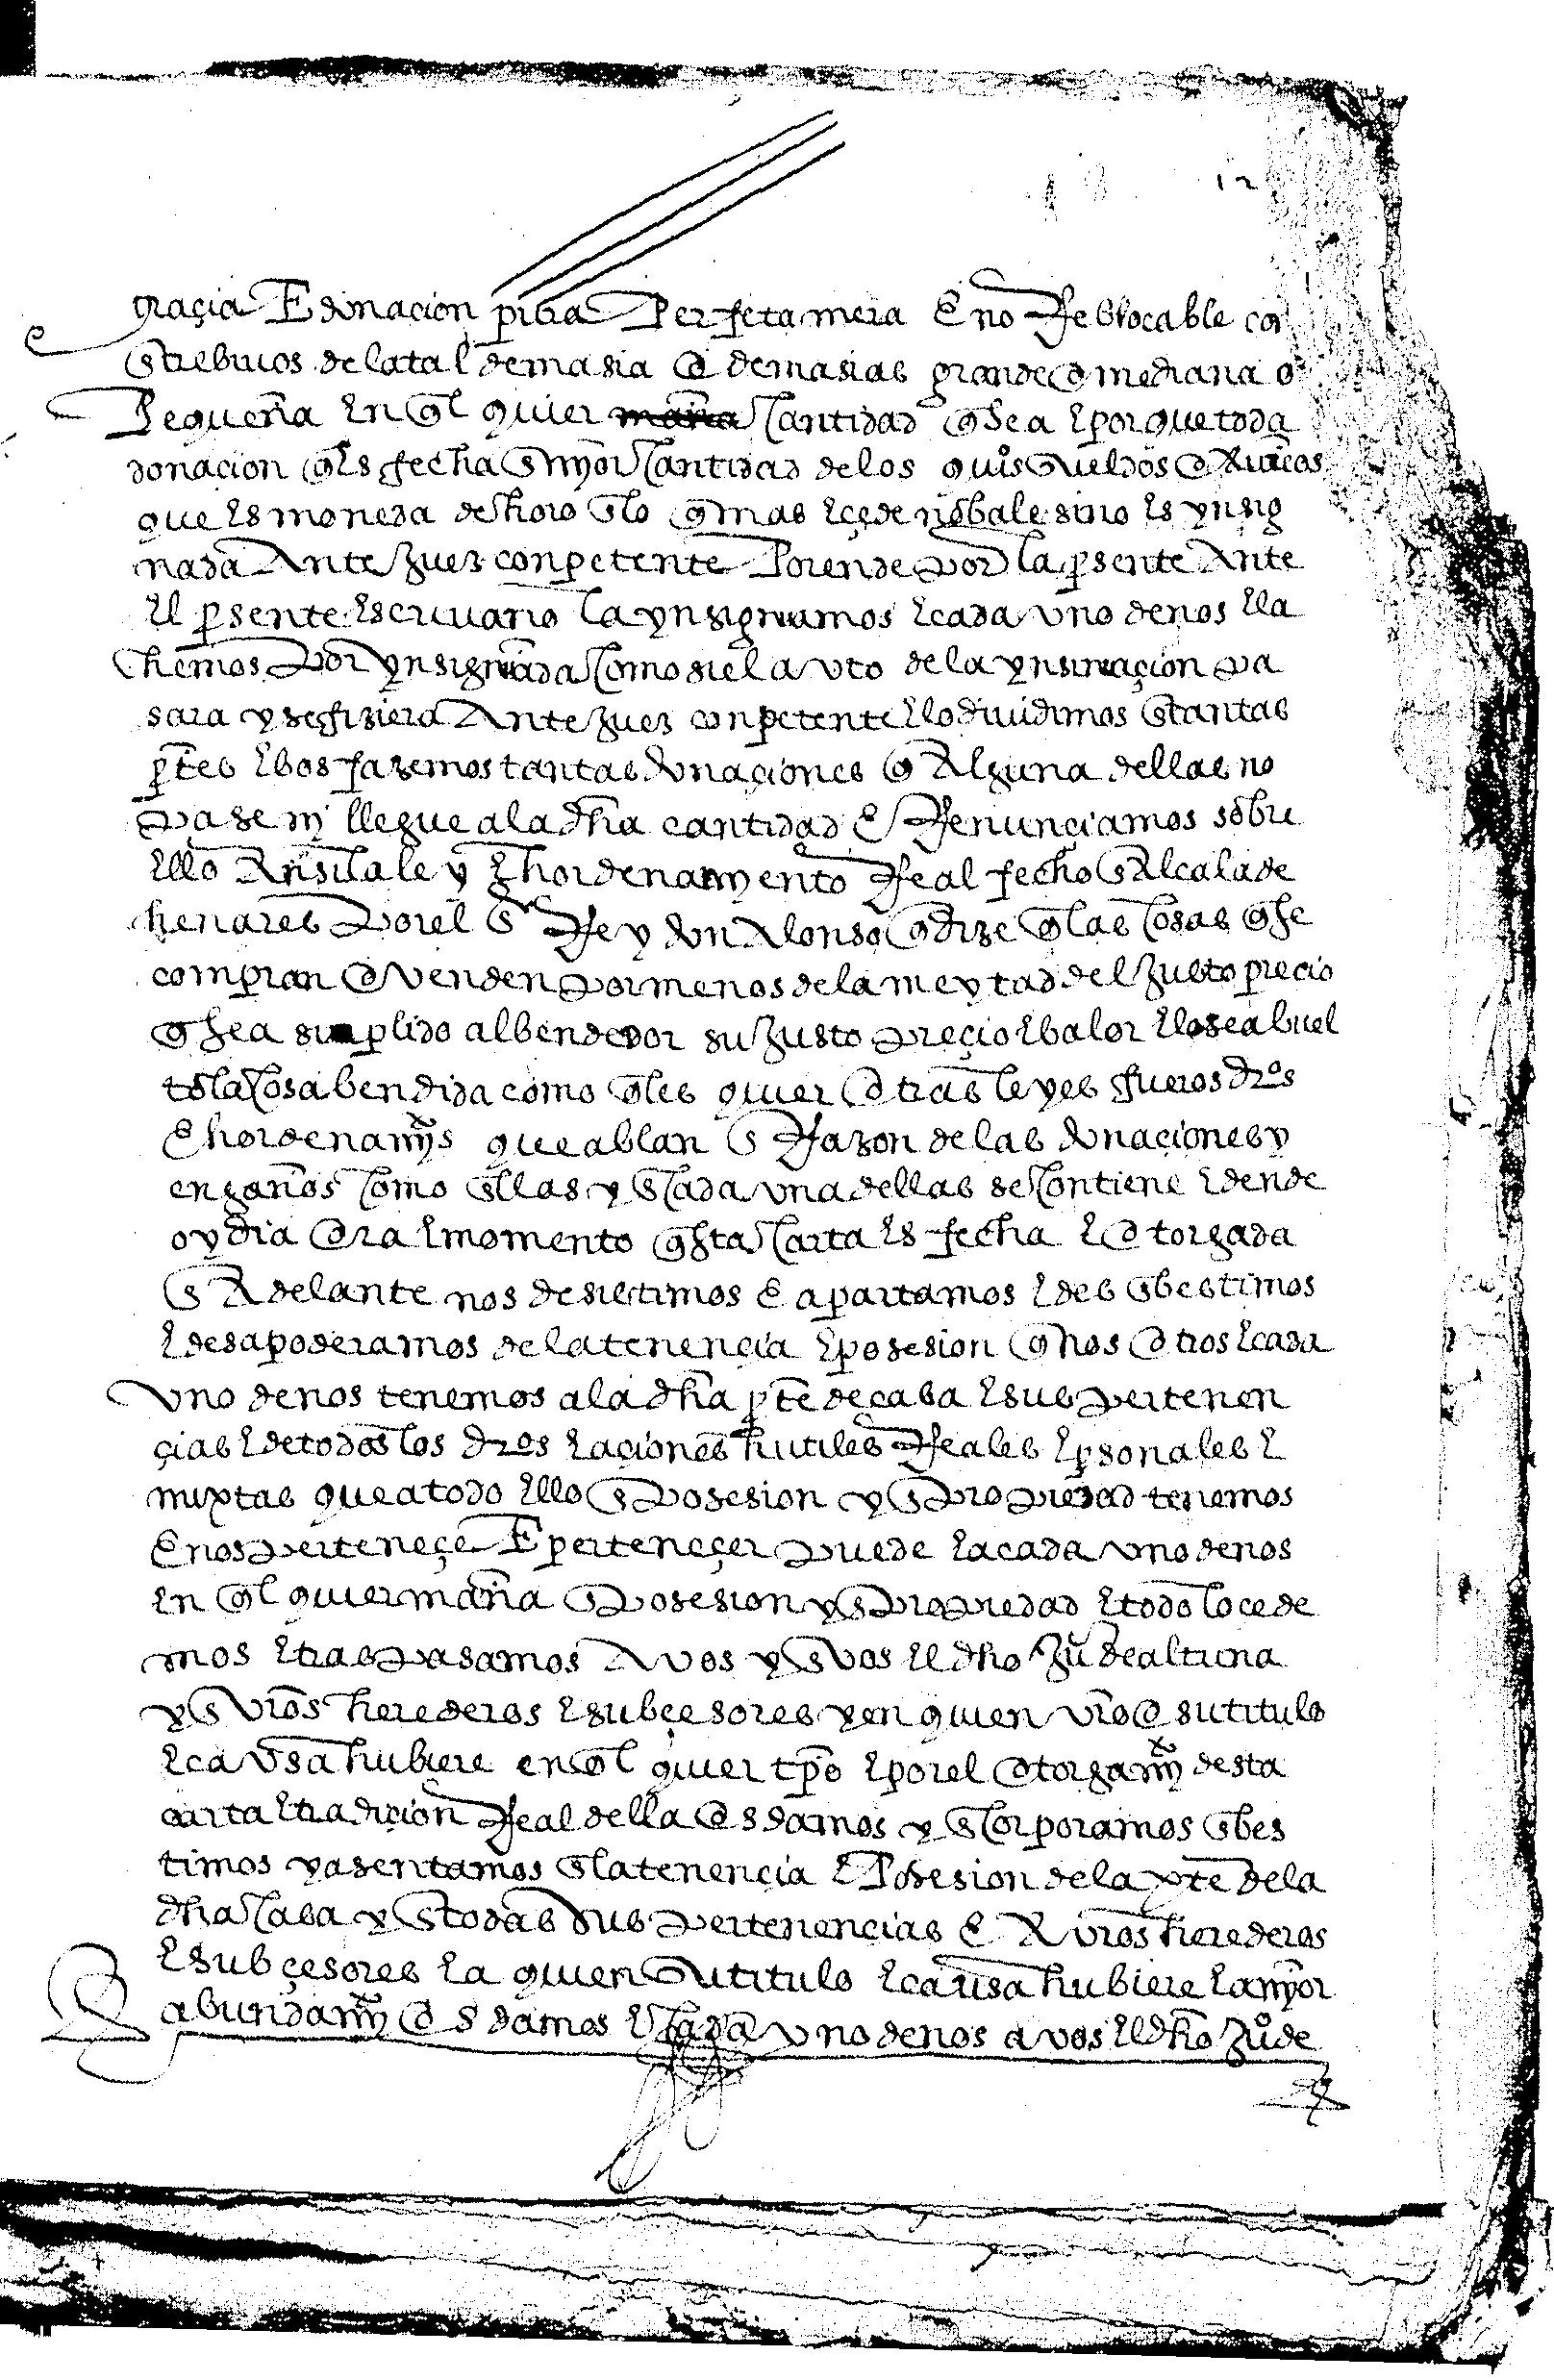 12
graçia E donacion pura Perfeta mera E no Rebocable con
stribuios de la tal demasia o demasias grande o mediana o
Pequeña En ql quier Cantidad q sea E por que toda
donacion q Es fecha En myor Cantidad de los quis sueldos aureos
que Es moneda de horo En lo q mas Eçede no bale si no Es ynsig
nada Ante Juez conpetente Por ende Por la presente Ante
El presente Escriuano la ynsignuamos E cada vno de nos E la
hemos Por ynsignuada Como si el avto de la ynsinuaçion pa
sara y se fiziera Ante Juez conpetente E lo diuidimos En tantas
ptes E bos fazemos tantas donaçiones q Alguna dellas no
pase ni llegue a la dha cantidad E Renunçiamos sobre
Ello Ansi la ley E hordenamyento Real fecho En Alcala de
henares Por el Sr Rey don Alonso q dize q las Cosas q se
compran o venden por menos de la meytad del Justo precio
q sea sunplido al bendedor su Justo preçio E balor E lo sea buel
to la Cosa bendida como qles quier otras leyes fueros dros
E hordenamys que ablan En Razon de las donaçiones y
engaños Como En llas y En Cada vna dellas se Contiene E dende
oy dia ora E momento q Esta Carta Es fecha E otorgada
En Adelante nos desistimos E apartamos E des Enbestimos
E desapoderamos de la tenençia E posesion q nos otros E cada
vno de nos tenemos a la dha pte de casa E sus pertenen
çias E de todos los dros E açiones hutiles Reales E psonales E
mixtas que a todo Ello En Posesion y En Propiedad tenemos
E nos perteneçe E perteneçer puede E a cada vno de nos
En ql quier mana En Posesion y En Propiedad E todo lo cede
mos E traspasamos A vos y En vos El dho Ju de altuna
y En vros herederos E subçesores y en quien vro o su titulo
E cavsa hubiere en ql quier tpo E por el otorgamy desta
carta E tradiçion Real della os damos y EnCorporamos Enbes
timos y asentamos En la tenençia E Posesion de la pte de la
dha Casa y En todas sus pertenençias E A vros herederos
E subçesores E a quien su titulo E causa hubiere E a myor
abundamy os damos E Cada vno de nos a vos El dho Juo de